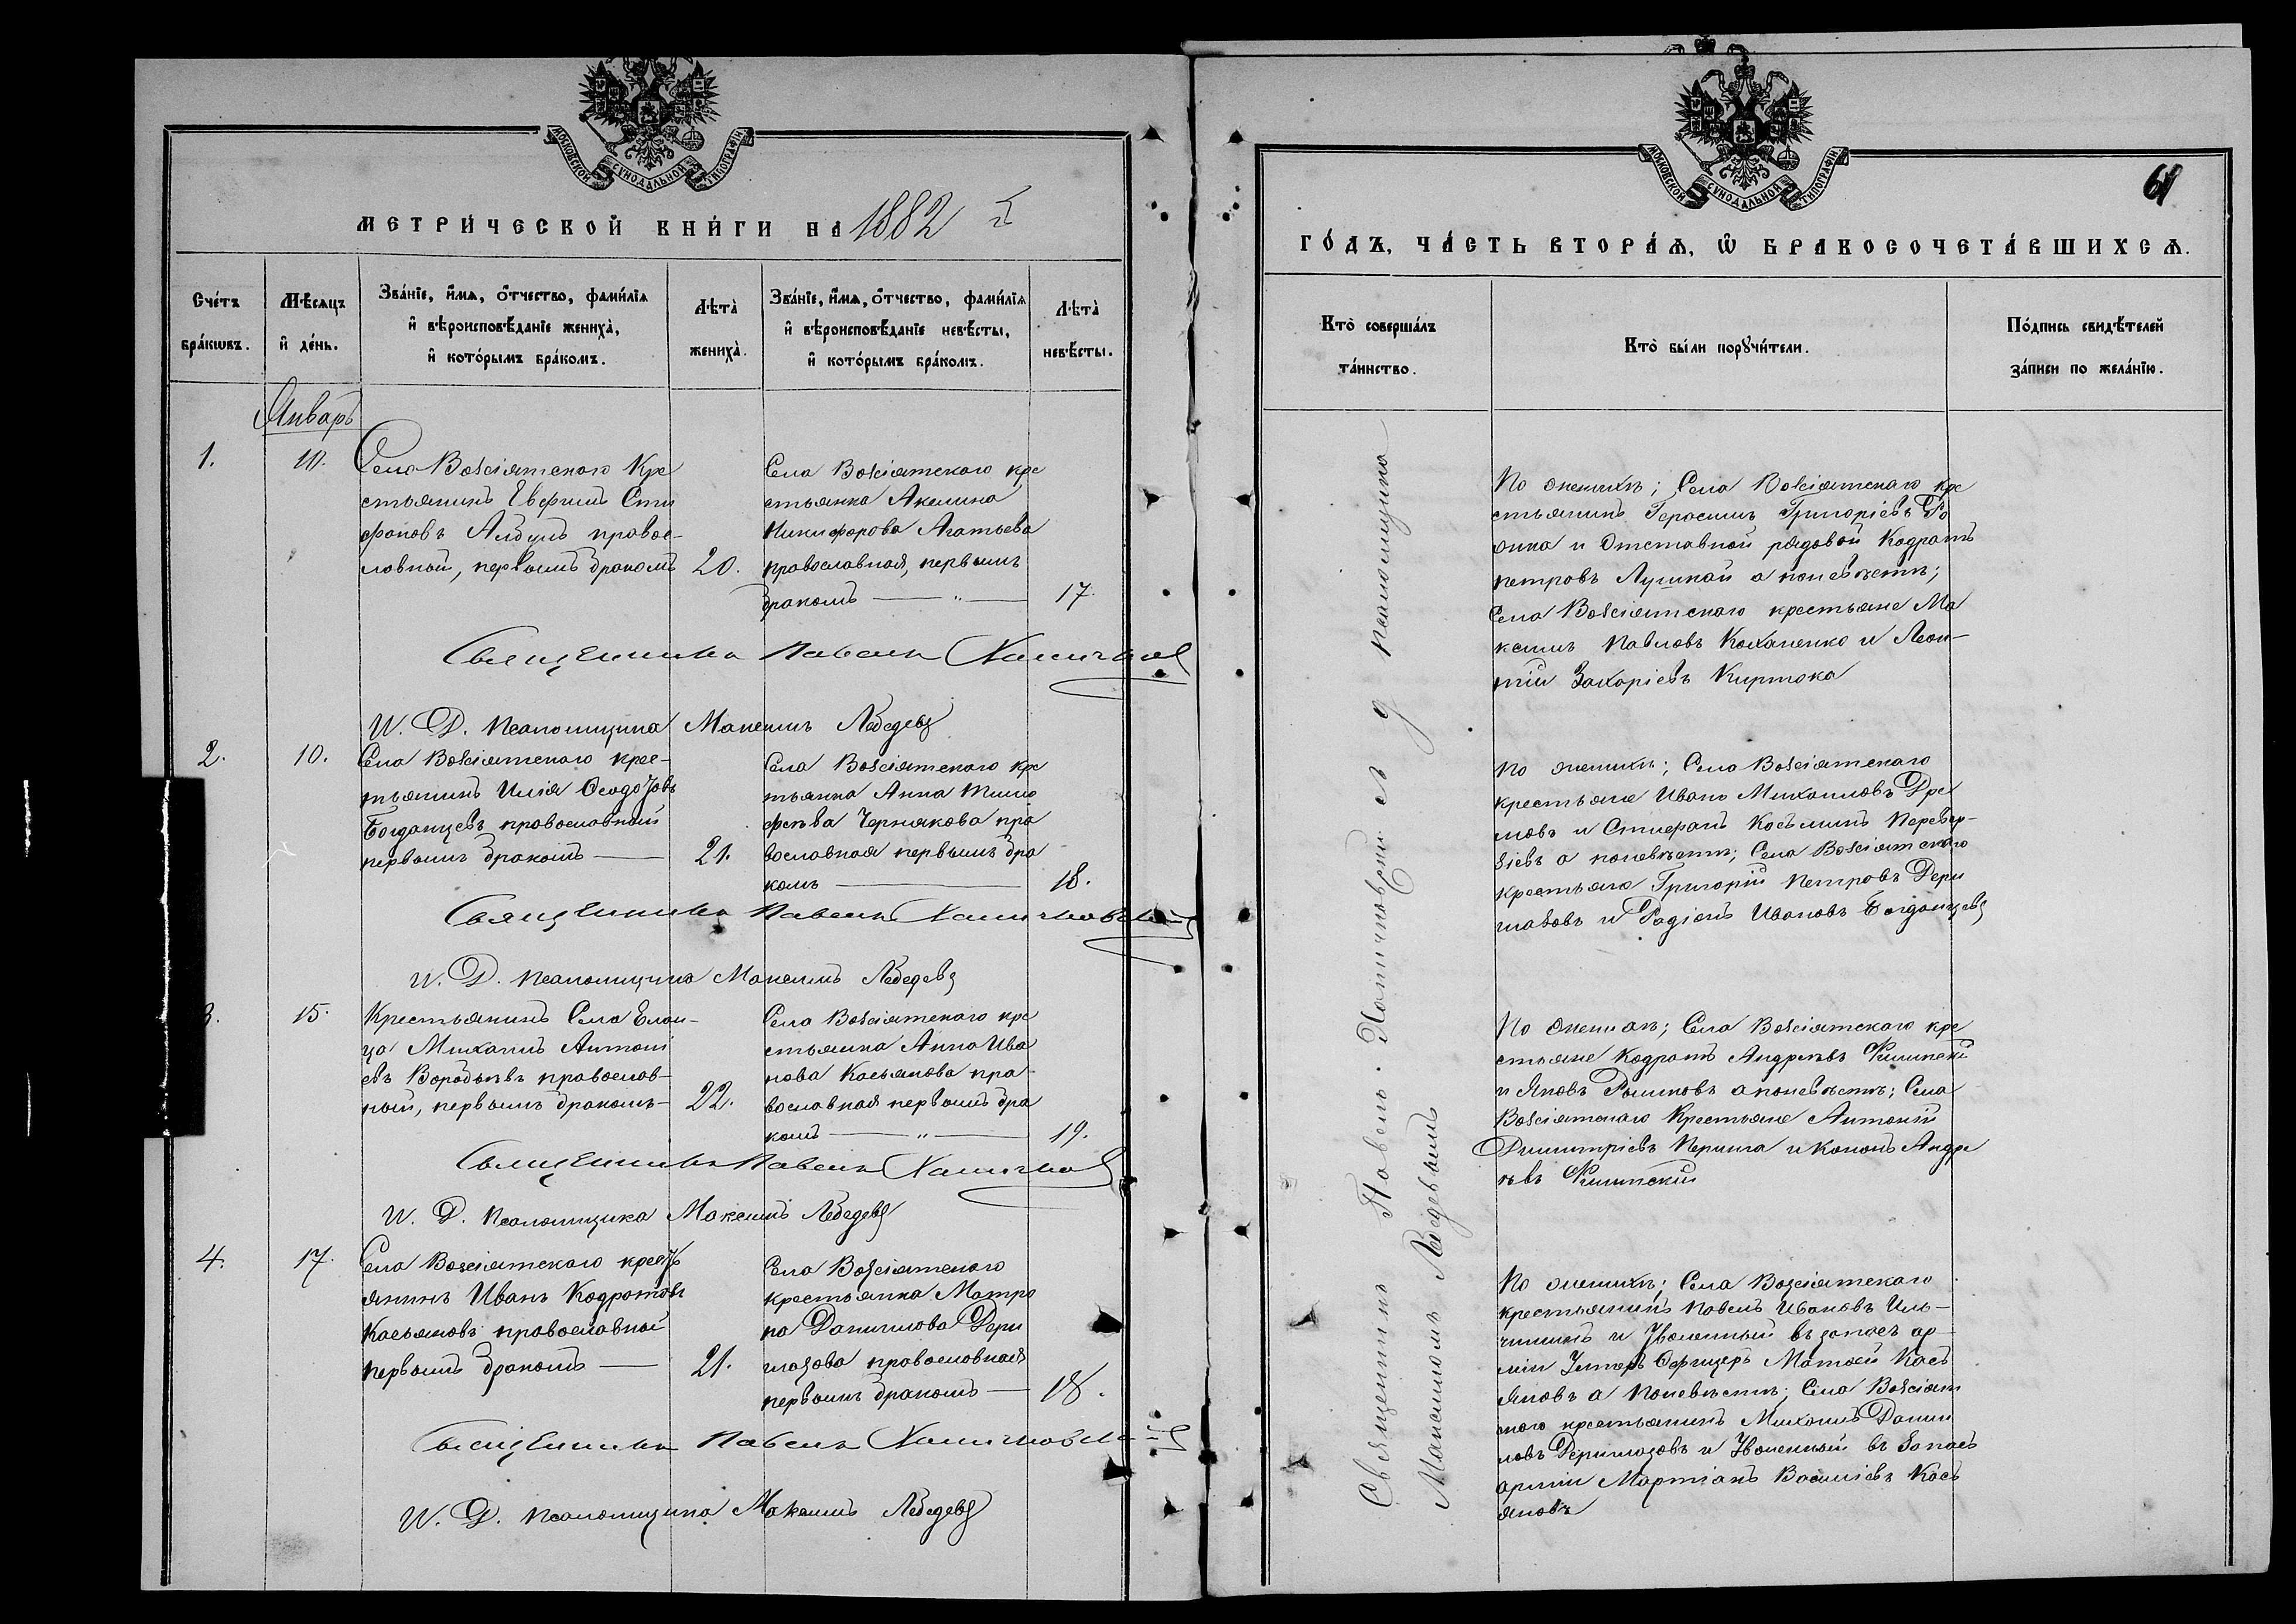 МОСКОВСКОЙ СѴНОДАЛЬНОЙ ТИПОГРАФІИ
МЕТРИ́ЧЕСКОЙ КНИ́ГИ НА 1882 й
Сче́тъ бра́кѡвъ.
Мѣ́сяцъ и҆ де́нь.
Зва́нїе, и҆́мѧ, ѻ҆́тчество, фами́лїѧ
и҆ вѣроисповѣ́данїе женихà,
и҆ кото́рымъ бра́комъ.
Лѣтà женихà.
Зва́нїе, и҆́мѧ, ѻ҆́тчество, фами́лїѧ
и҆ вѣроисповѣ́данїе невѣ́сты,
и҆ кото́рымъ бра́комъ.
Лѣтà невѣ́сты.
Январь
1.
10.
Села Возсіятскаго Кре
стьянинъ Евфимъ Сти
фановъ Албулъ правос-
лавный, первымъ бракомъ
20.
Села Возсіятскаго кре
стьянка Акелина
Никифорова Агатьева
православная, первымъ
бракомъ — „ —
17.
Священникъ Павелъ
И. Д. Псаломщика Максимъ Лебедевъ
2.
10.
Села Возсіятскаго крес-
тьянинъ Илія Ѳеодозовъ
Богданцевъ православный
первымъ бракомъ —
21.
Села Возсіятскаго кре
тьянка Анна Тимо
феѣва Чернякова пра
вославная первымъ бра
комъ —
18.
Священникъ Павелъ
И. Д. Псаломщика Максимъ Лебедевъ
3.
15.
Крестьянинъ Села Елан-
ца Михаилъ Антоні
евъ Воробьевъ православ-
ный, первымъ бракомъ-
22.
Села Возсіятскаго кре
стьянка Анна Ива
нова Касьянова пра
вославная первымъ бра
комъ — „ —
19.
Священникъ Павелъ
И. Д. Псаломщика Максимъ Лебедевъ
4.
17.
Села Возсіятскаго кресть
янинъ Иванъ Кодратовъ
Касьяновъ православный
первымъ бракомъ —
21.
Села Возсіятскаго
крестьянка Матро
на Данилова Дери
глазова православная
первымъ бракомъ —
18.
Священникъ Павелъ
И. Д. Псаломщика Максимъ Лебедевъ
МОСКОВСКОЙ СѴНОДАЛЬНОЙ ТИПОГРАФІИ
61
ГО́ДЪ, ЧА́СТЬ ВТОРА́Ѧ, Ѡ҆ БРАКОСОЧЕТА́ВШИХСѦ.
Кто̀ соверша́лъ та́инство.
Кто̀ бы́ли порꙋчи́тели.
По́дпись свидѣ́телей за́писи по жела́нїю.
Священникъ Павелъ и д псаломщика
Максимъ Лебедевъ
По женихѣ; Села Возсіятскаго кре
стьянинъ Герасимъ Григоріевъ
и Отставной рядовой Кодратъ
петровъ а поневѣстѣ;
Села Возсіятскаго крестьяне Ма
ксимъ Павловъ Коханенко и Леон-
тій Захаріевъ Киртока
По женихѣ; Села Возсіятскаго
крестьяне Иванъ Михаиловъ
и Стиефанъ Косьминъ Перевер-
зіевъ а поневѣстѣ; Села Возсіятскаго
крестьяне Григорій петровъ Дери
глазовъ и Родіонъ Ивановъ Богданцевъ
По женихѣ; Села Возсіятскаго кре
стьяне Кодратъ Андреѣвъ
и Яковъ а поневѣстѣ; Села
Возсіятскаго Крестьяне Антоній
Димитріевъ и Кононъ Андре
ѣвъ
По женихѣ; Села Возсіятскаго
крестьянинъ Павелъ Ивановъ Иль-
и Уволенный въ запасъ ар-
міи Унтеръ Офицеръ Матвей Кась
яновъ а поневѣстѣ; Села Возсіят
скаго крестьянинъ Михаилъ Дании
ловъ Дериглазовъ и Уволенный въ Запасъ
арміи Мартіанъ Василіевъ Кась
яновъ